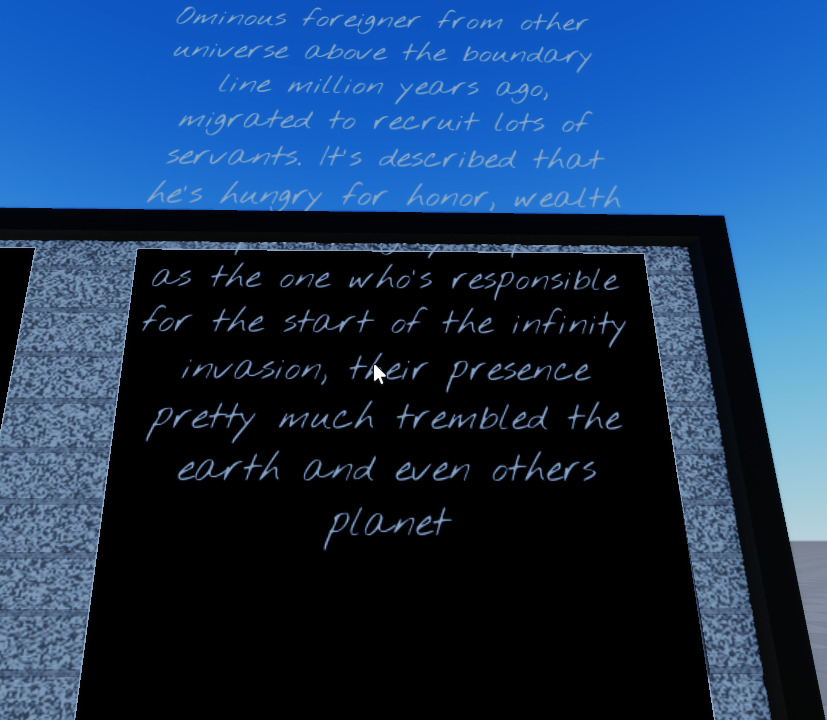 Ominous foreigner from other
universe above the boundary
line million years ago,
migrated to recruit lots of
servants. It's described that
he's hungry for honor, wealth
as the one who's responsible
for the start of the infinity
invasion, their presence
pretty much trembled the
earth and even others
planet